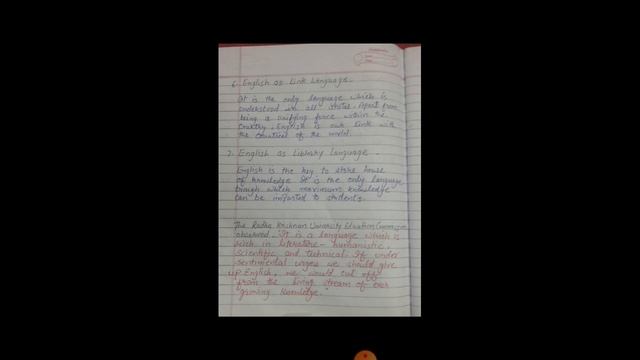 6. English as Link Language -
It is the only language which is
understood in all states. Apart from
being a unifying force within the
country, English is our link with
the countries of the world.
7. English as Library Language
English is the key to store house
of knowledge It is the only language
through which maximum knowledge
can be imparted to students.
The Radha Krishnan University Education Commission
observed. "It is a language which is
rich in literature - humanistic,
scientific and technical. If under
sentimental urges we should give
up English, we would cut off
from the living stream of ever
growing knowledge."